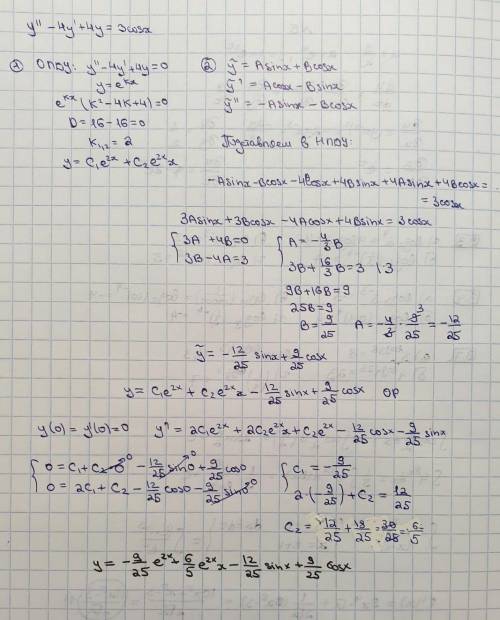 y'' - 4y' + 4y = 3cosx
1) ОЛОУ: y'' - 4y' + 4y = 0
y = e^{kx}
e^{kx}(k² - 4k + 4) = 0
D = 16 - 16 = 0
k_{1,2} = 2
y = C₁e^{2x} + C₂e^{2x}x
2) ỹ = Asinx + Bcosx
ỹ' = Acosx - Bsinx
ỹ'' = -Asinx - Bcosx
Подставляем в НЛОУ:
-Asinx - Bcosx - 4Acosx + 4Bsinx + 4Asinx + 4Bcosx =
= 3cosx
3Asinx + 3Bcosx - 4Acosx + 4Bsinx = 3cosx
{ 3A + 4B = 0 { A = -4/3 B
3B - 4A = 3 3B + 16/3 B = 3 | · 3
9B + 16B = 9
25B = 9
B = 9/25 A = -4/3 · 9³/25 = -12/25
ỹ = -12/25 sinx + 9/25 cosx
y = C₁e^{2x} + C₂e^{2x}x - 12/25 sinx + 9/25 cosx ОР
y(0) = y'(0) = 0 y' = 2C₁e^{2x} + 2C₂e^{2x}x + C₂e^{2x} - 12/25 cosx - 9/25 sinx
{ 0 = C₁ + C₂·0 - 12/25 sin0 + 9/25 cos0 { C₁ = -9/25
0 = 2C₁ + C₂ - 12/25 cos0 - 9/25 sin0 2·(-9/25) + C₂ = 12/25
C₂ = 12/25 + 18/25 = 30/25 = 6/5
y = -9/25 e^{2x} + 6/5 e^{2x}x - 12/25 sinx + 9/25 cosx